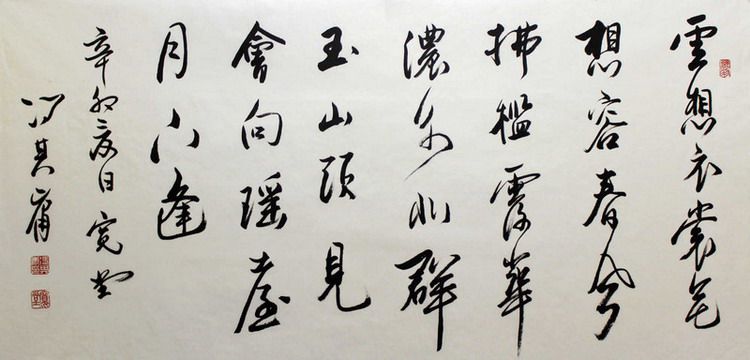 雲想衣裳花
想容春風
拂檻露華
濃若非群
玉山頭見
會向瑶臺
月下逢
辛卯夏日寬堂
馮其庸